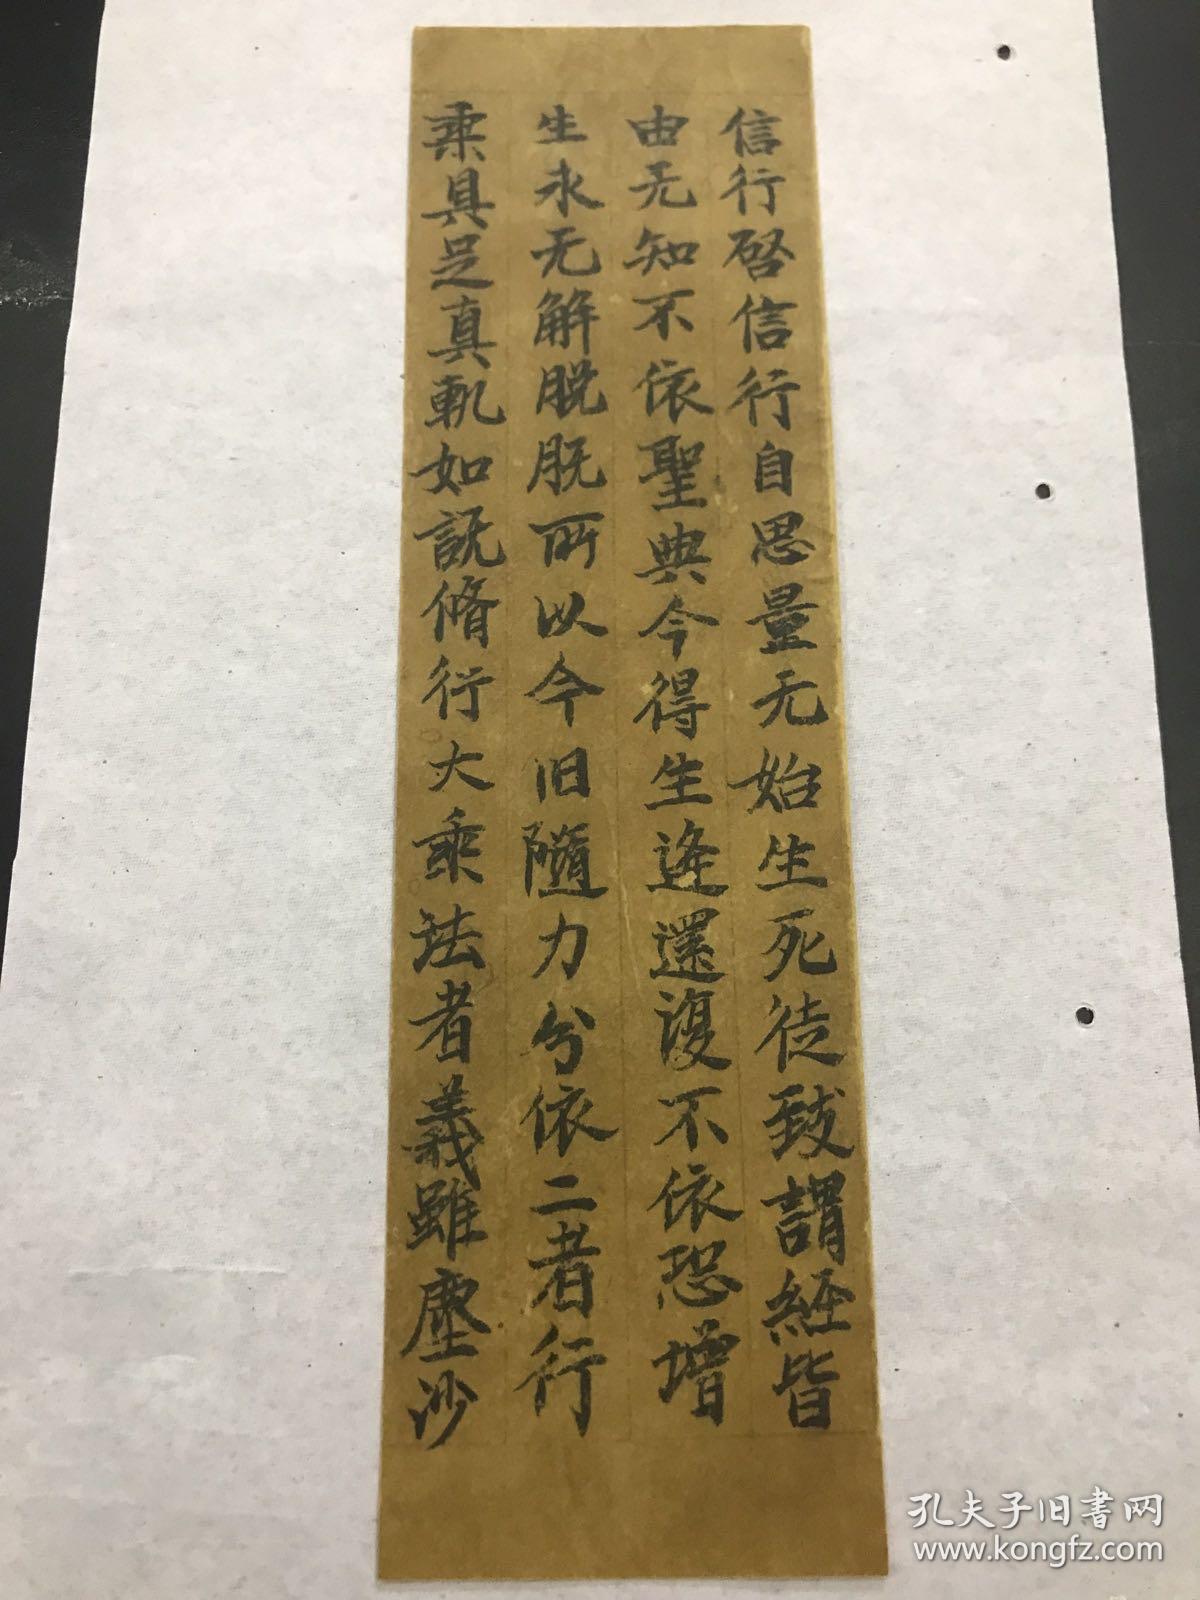 信行啓信行自思量无始生死徒致謂經皆
由无知不依聖典今得生逢還復不依恐増
生永无解脱脱所以今旧隨力兮依二者行
乘具足真軌如説脩行大乘法者義雖塵沙
孔夫子旧书网
www.kongfz.com